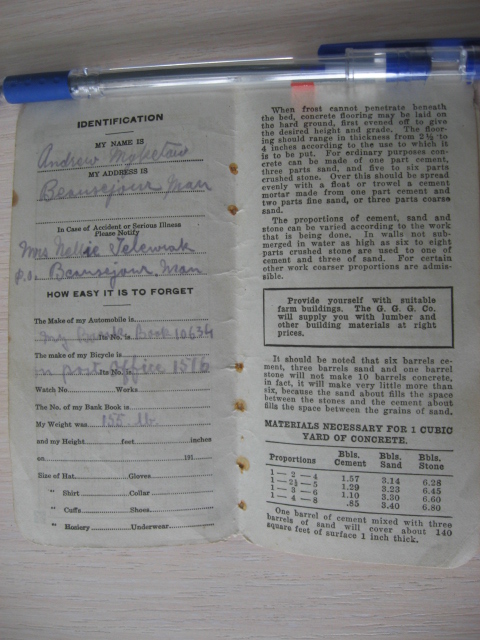 IDENTIFICATION
MY NAME IS
Andrew
MY ADDRESS IS
Beausejour Man
In Case of Accident or Serious Illness
Please Notify
Mrs Nellie
p.o. Beausejour Man
HOW EASY IT IS TO FORGET
The Make of my Automobile is
Its No. is
my Bank Book 10634
The make of my Bicycle is
Its No. is
in post office 1576
Watch No. Works
The No. of my Bank Book is
My Weight was 155 lb
and my Height feet inches
on 191
Size of Hat Gloves
" Shirt Collar
" Cuffs Shoes
" Hosiery Underwear
When frost cannot penetrate beneath
the bed, concrete flooring may be laid on
the hard ground, first evened off to give
the desired height and grade. The floor-
ing should range in thickness from 2½ to
4 inches according to the use to which it
is to be put. For ordinary purposes con-
crete can be made of one part cement,
three parts sand, and five to six parts
crushed stone. Over this should be spread
evenly with a float or trowel a cement
mortar made from one part cement and
two parts fine sand, or three parts coarse
sand.
The proportions of cement, sand and
stone can be varied according to the work
that is being done. In walls not sub-
merged in water as high as six to eight
parts crushed stone are used to one of
cement and three of sand. For certain
other work coarser proportions are admis-
sible.
Provide yourself with suitable
farm buildings. The G. G. G. Co.
will supply you with lumber and
other building materials at right
prices.
It should be noted that six barrels ce-
ment, three barrels sand and one barrel
stone will not make 10 barrels concrete,
in fact, it will make very little more than
six, because the sand about fills the space
between the stones and the cement about
fills the space between the grains of sand.
MATERIALS NECESSARY FOR 1 CUBIC
YARD OF CONCRETE.
Proportions Bbls. Cement Bbls. Sand Bbls. Stone
1 — 2 — 4 1.57 3.14 6.28
1 — 2½ — 5 1.29 3.23 6.45
1 — 3 — 6 1.10 3.30 6.60
1 — 4 — 8 .85 3.40 6.80
One barrel of cement mixed with three
barrels of sand will cover about 140
square feet of surface 1 inch thick.